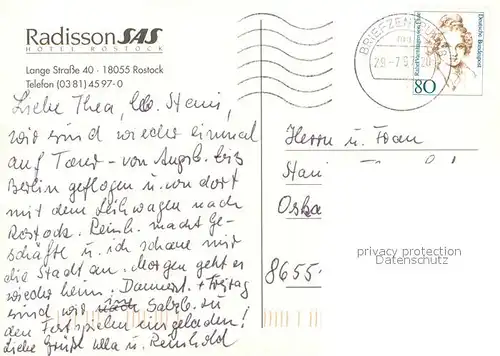 Radisson SAS
HOTEL ROSTOCK
Lange Straße 40 - 18055 Rostock
Telefon (03 81) 45 97-0
Liebe Thea, lb. Hans,
wir sind wieder einmal
auf Tour - von Augsb. bis
Berlin geflogen u. von dort
mit dem Leihwagen nach
Rostock. Reinh. macht Ge-
schäfte u. ich schaue mir
die Stadt an. Morgen geht es
wieder heim. Donnerst. + Freitag
sind wir nach Salzb. zu
den Festspielen eingeladen!
Liebe Grüße Ulla u. Reinhold
BRIEFZENTRUM
Deutsche Bundespost
80
Herrn u. Frau
Oska
8655
privacy protection
Datenschutz